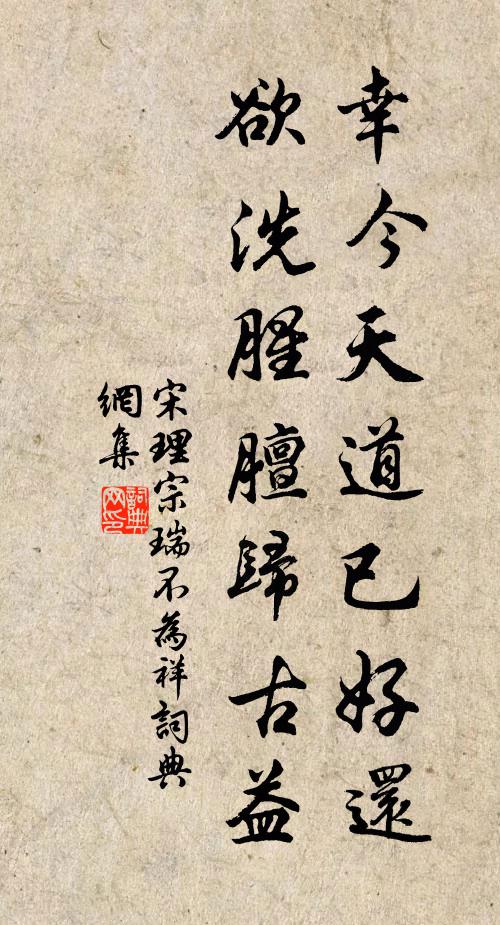 幸今天道已好還
欲洗腥膻歸古益
宋理宗瑞不為祥詞典
網集
詞典
网印